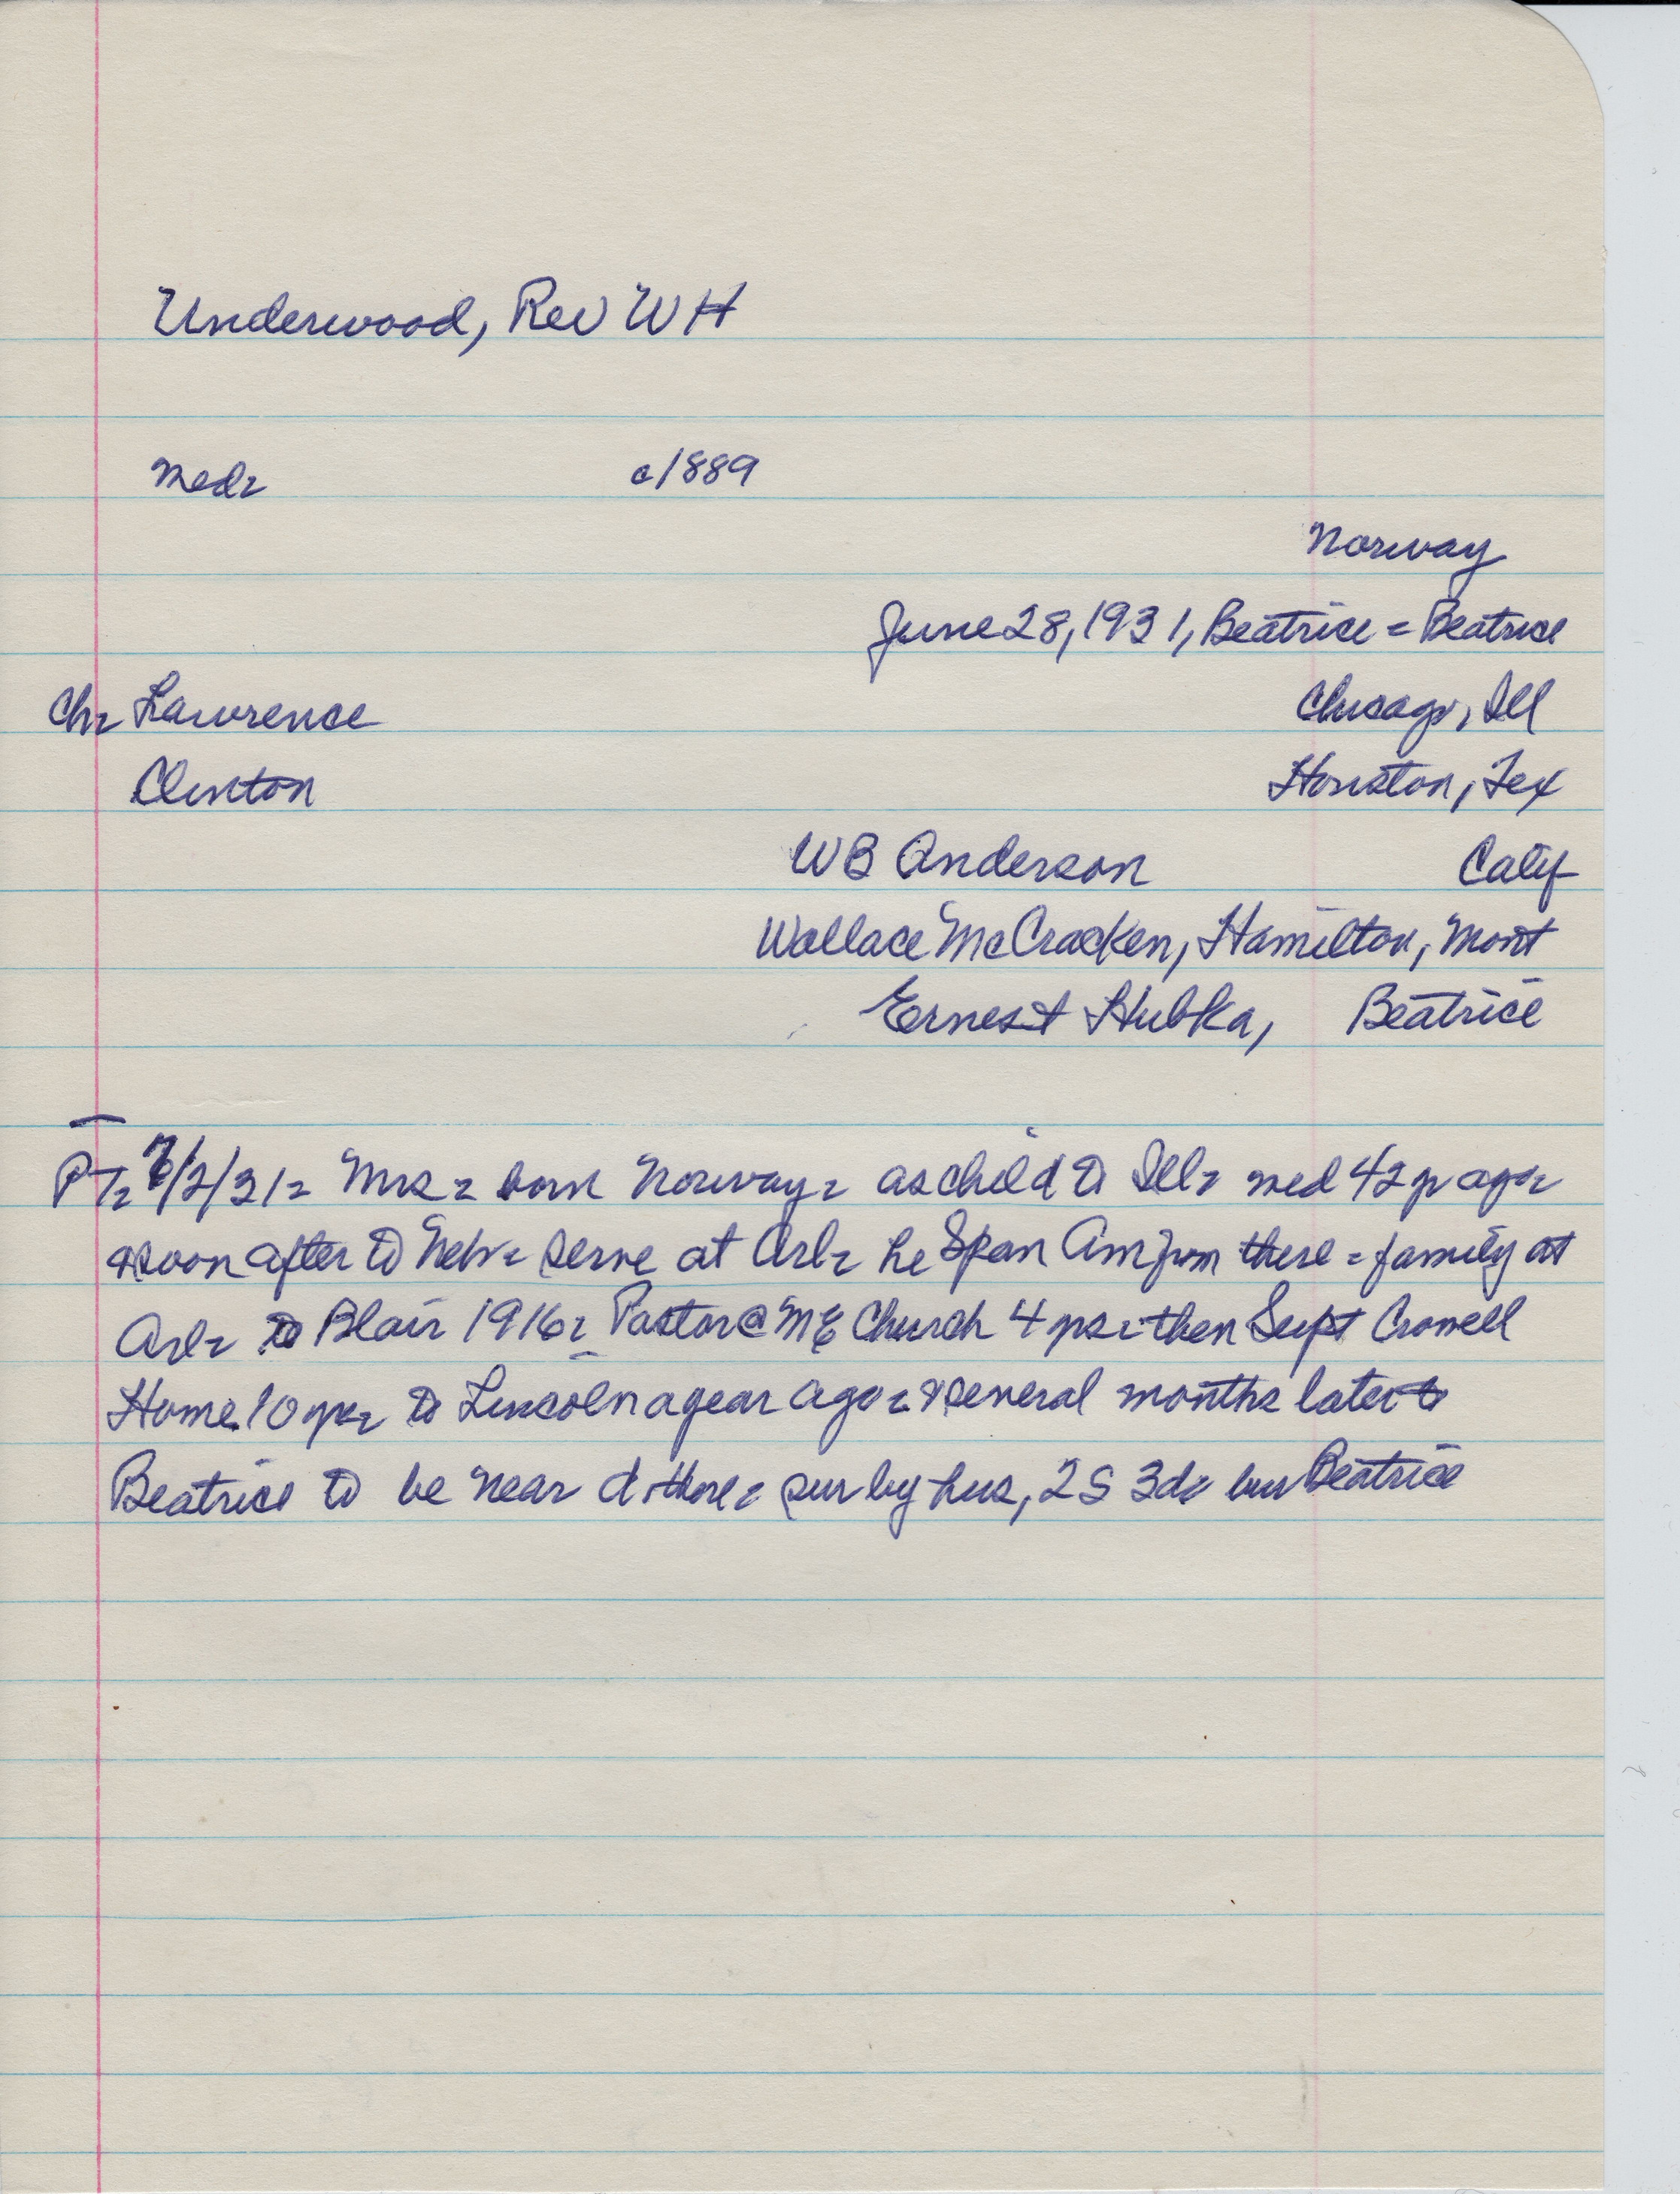 Underwood, Rev W H
Med= c1889
Norway
June 28, 1931, Beatrice = Beatrice
Ch= Lawrence Chicago, Ill
Clinton Houston, Tex
WB Anderson Calif
Wallace McCracken, Hamilton, Mont
Ernest Hubka, Beatrice
PT= 7/2/31= Mrs = born Norway= as child to Ill= med 42 yr ago=
& soon after to Neb = serve at Arl= he Span Am from there = family at
Arl= to Blair 1916= Pastor @ ME Church 4 yrs = then Supt Crowell
Home 10 yrs= to Lincoln a year ago = & several months later to
Beatrice to be near d there= sur by hus, 2S 3ds bur Beatrice